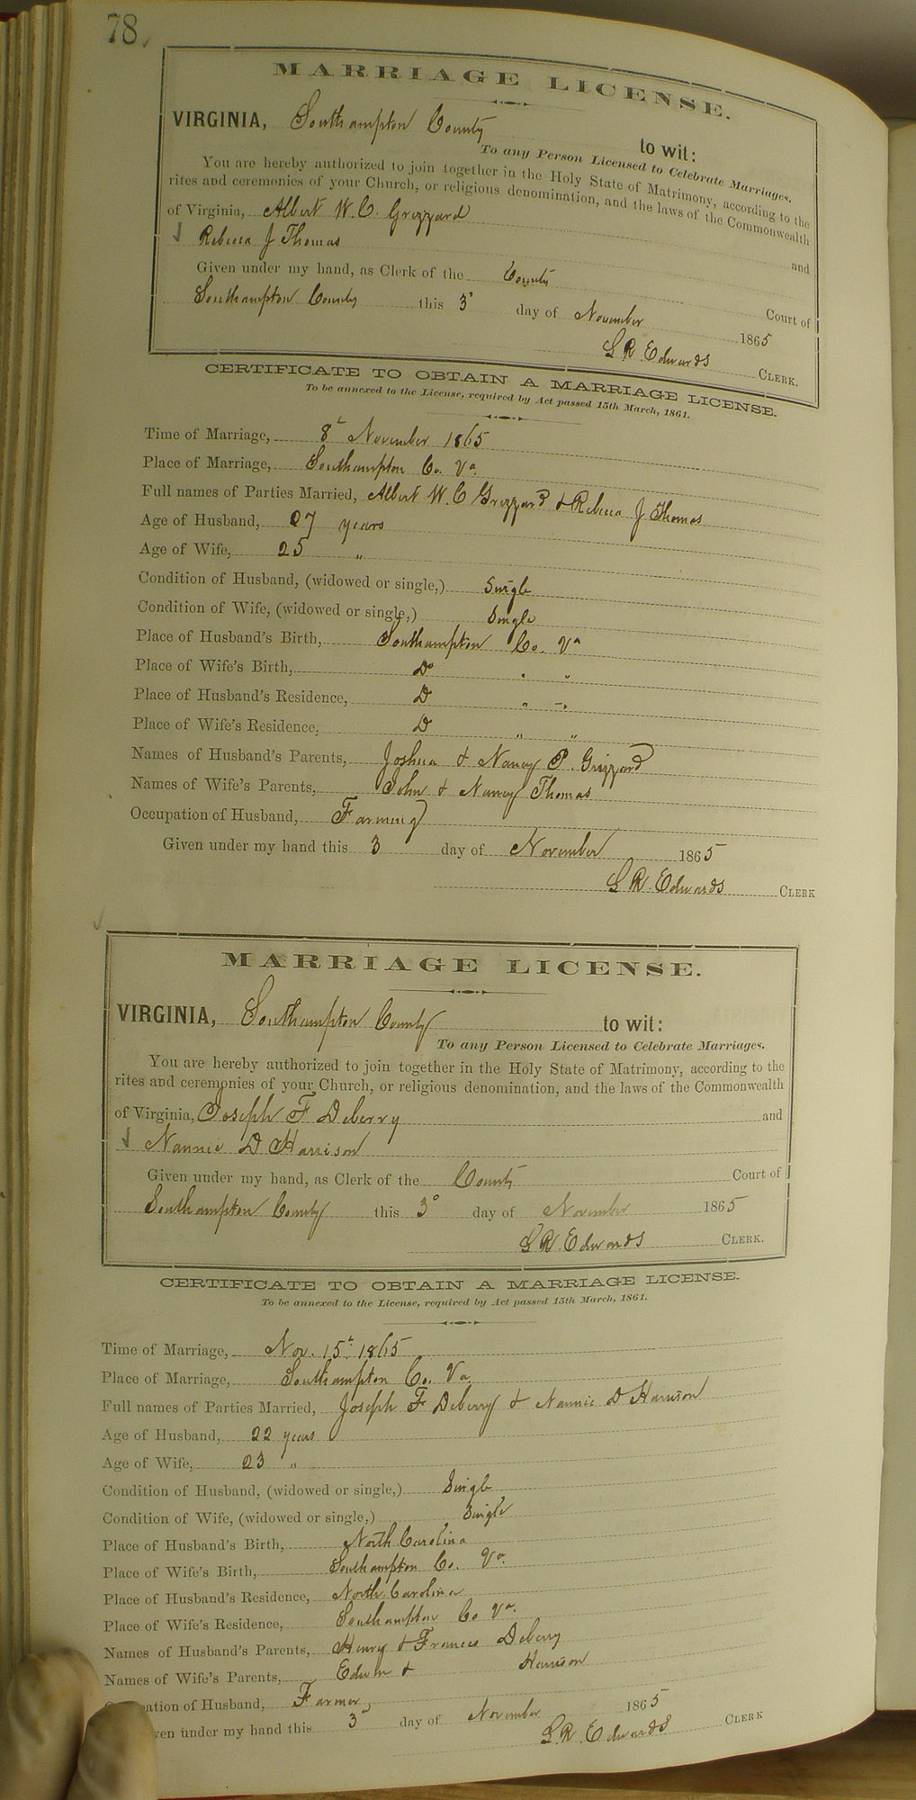 78.
MARRIAGE LICENSE.
VIRGINIA, Southampton County to wit:
To any Person Licensed to Celebrate Marriages.
You are hereby authorized to join together in the Holy State of Matrimony, according to the
rites and ceremonies of your Church, or religious denomination, and the laws of the Commonwealth
of Virginia, Albert W. C. Grizzard and
Rebecca J Thomas
Given under my hand, as Clerk of the County Court of
Southampton County this 3d day of November 1865
L R. Edwards CLERK.
CERTIFICATE TO OBTAIN A MARRIAGE LICENSE.
To be annexed to the License, required by Act passed 15th March, 1861.
Time of Marriage, 8t November 1865
Place of Marriage, Southampton Co. Va.
Full names of Parties Married, Albert W. C Grizzard & Rebecca J Thomas
Age of Husband, 27 years
Age of Wife, 25 "
Condition of Husband, (widowed or single,) Single
Condition of Wife, (widowed or single,) Single
Place of Husband's Birth, Southampton Co. Va
Place of Wife's Birth, Do " "
Place of Husband's Residence, D " "
Place of Wife's Residence, D " "
Names of Husband's Parents, Joshua & Nancy P. Grizzard
Names of Wife's Parents, John & Nancy Thomas
Occupation of Husband, Farming
Given under my hand this 3 day of November 1865
L R. Edwards CLERK
MARRIAGE LICENSE.
VIRGINIA, Southampton County to wit:
To any Person Licensed to Celebrate Marriages.
You are hereby authorized to join together in the Holy State of Matrimony, according to the
rites and ceremonies of your Church, or religious denomination, and the laws of the Commonwealth
of Virginia, Joseph F Deberry and
Nannie D Harrison
Given under my hand, as Clerk of the County Court of
Southampton County this 3d day of November 1865
L R. Edwards CLERK.
CERTIFICATE TO OBTAIN A MARRIAGE LICENSE.
To be annexed to the License, required by Act passed 15th March, 1861.
Time of Marriage, Nov. 15t 1865
Place of Marriage, Southampton Co. Va.
Full names of Parties Married, Joseph F Deberry & Nannie D Harrison
Age of Husband, 22 years
Age of Wife, 23 "
Condition of Husband, (widowed or single,) Single
Condition of Wife, (widowed or single,) Single
Place of Husband's Birth, North Carolina
Place of Wife's Birth, Southampton Co. Va.
Place of Husband's Residence, North Carolina
Place of Wife's Residence, Southampton Co Va.
Names of Husband's Parents, Henry & Frances Deberry
Names of Wife's Parents, Edwin & Harrison
ation of Husband, Farmer
ven under my hand this 3d day of November 1865
L. R. Edwards CLERK